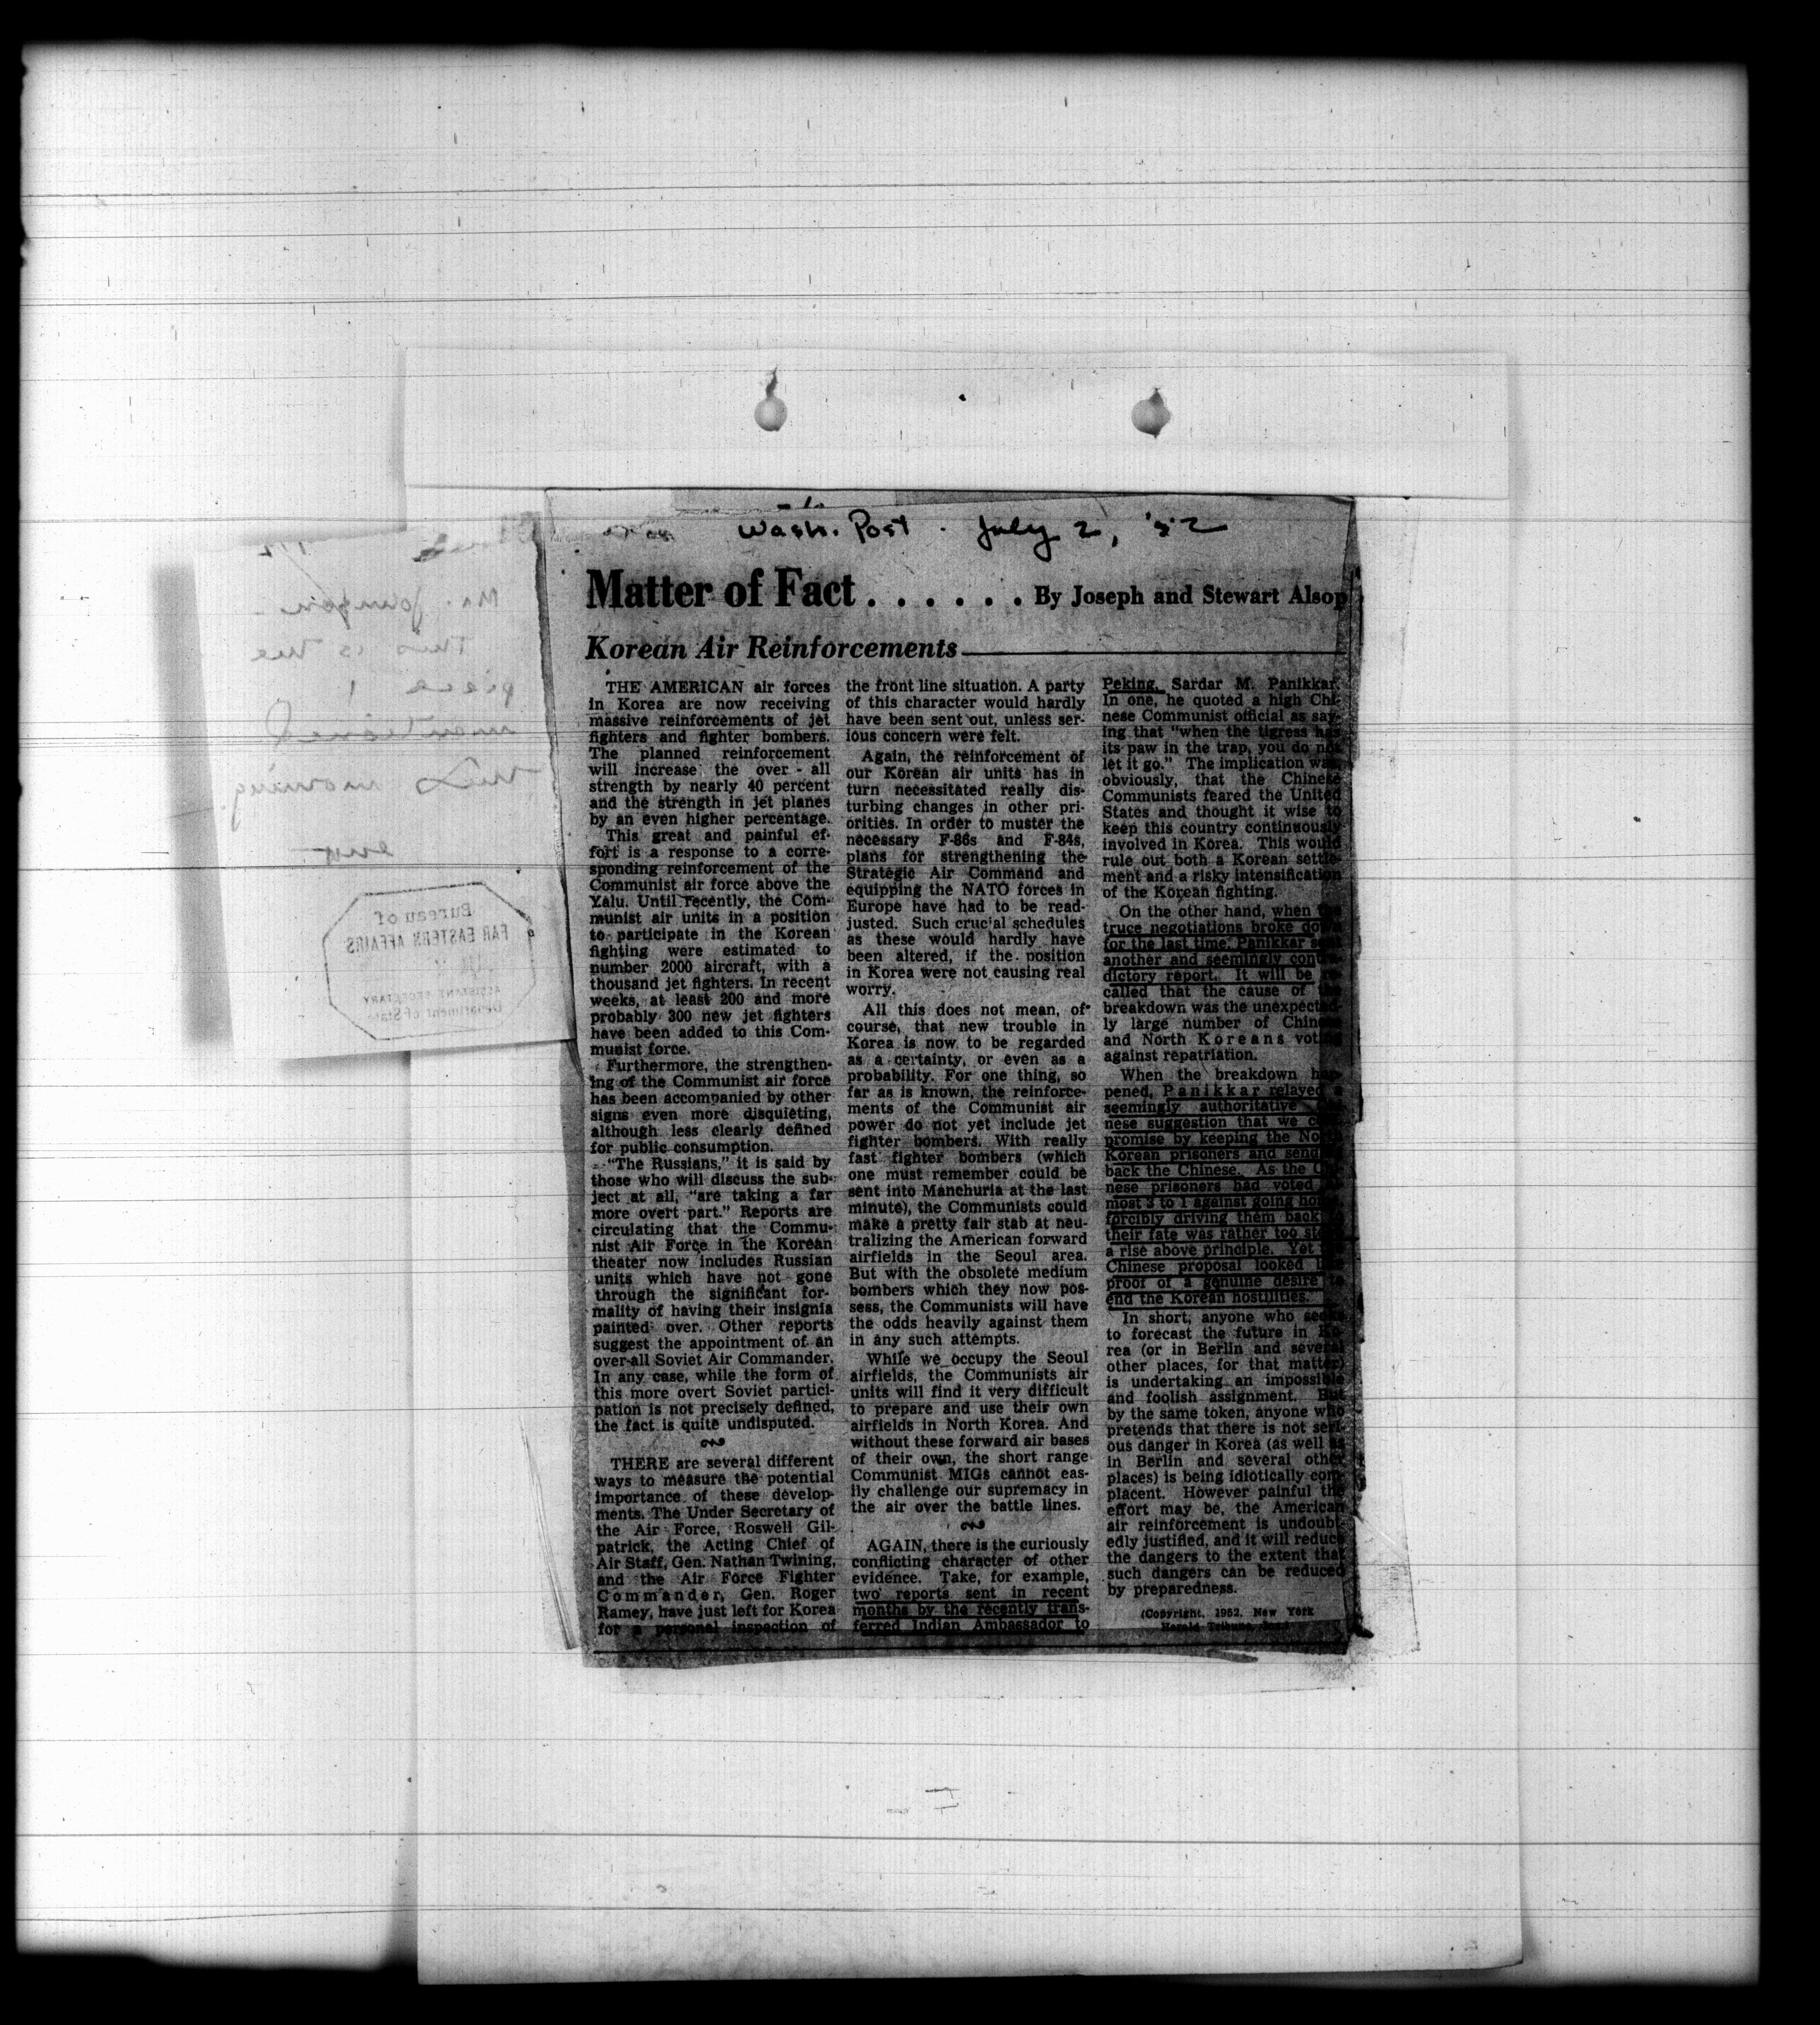 Wash. Post - July 2, '52
Matter of Fact . . . . . . By Joseph and Stewart Alsop
Korean Air Reinforcements
THE AMERICAN air forces
in Korea are now receiving
massive reinforcements of jet
fighters and fighter bombers.
The planned reinforcement
will increase the over-all
strength by nearly 40 percent
and the strength in jet planes
by an even higher percentage.
This great and painful ef-
fort is a response to a corre-
sponding reinforcement of the
Communist air force above the
Yalu. Until recently, the Com-
munist air units in a position
to participate in the Korean
fighting were estimated to
number 2000 aircraft, with a
thousand jet fighters. In recent
weeks, at least 200 and more
probably 300 new jet fighters
have been added to this Com-
munist force.
Furthermore, the strengthen-
ing of the Communist air force
has been accompanied by other
signs even more disquieting,
although less clearly defined
for public consumption.
"The Russians," it is said by
those who will discuss the sub-
ject at all, "are taking a far
more overt part." Reports are
circulating that the Commu-
nist Air Force in the Korean
theater now includes Russian
units which have not gone
through the significant for-
mality of having their insignia
painted over. Other reports
suggest the appointment of an
over-all Soviet Air Commander.
In any case, while the form of
this more overt Soviet partici-
pation is not precisely defined,
the fact is quite undisputed.
THERE are several different
ways to measure the potential
importance of these develop-
ments. The Under Secretary of
the Air Force, Roswell Gil-
patrick, the Acting Chief of
Air Staff, Gen. Nathan Twining,
and the Air Force Fighter
Commander, Gen. Roger
Ramey, have just left for Korea
for a personal inspection of
the front line situation. A party
of this character would hardly
have been sent out, unless ser-
ious concern were felt.
Again, the reinforcement of
our Korean air units has in
turn necessitated really dis-
turbing changes in other pri-
orities. In order to muster the
necessary F-86s and F-84s,
plans for strengthening the
Strategic Air Command and
equipping the NATO forces in
Europe have had to be read-
justed. Such crucial schedules
as these would hardly have
been altered, if the position
in Korea were not causing real
worry.
All this does not mean, of
course, that new trouble in
Korea is now to be regarded
as a certainty, or even as a
probability. For one thing, so
far as is known, the reinforce-
ments of the Communist air
power do not yet include jet
fighter bombers. With really
fast fighter bombers (which
one must remember could be
sent into Manchuria at the last
minute), the Communists could
make a pretty fair stab at neu-
tralizing the American forward
airfields in the Seoul area.
But with the obsolete medium
bombers which they now pos-
sess, the Communists will have
the odds heavily against them
in any such attempts.
While we occupy the Seoul
airfields, the Communists air
units will find it very difficult
to prepare and use their own
airfields in North Korea. And
without these forward air bases
of their own, the short range
Communist MIGs cannot eas-
ily challenge our supremacy in
the air over the battle lines.
AGAIN, there is the curiously
conflicting character of other
evidence. Take, for example,
two reports sent in recent
months by the recently trans-
ferred Indian Ambassador to
Peking, Sardar M. Panikkar.
In one, he quoted a high Chi-
nese Communist official as say-
ing that "when the tigress has
its paw in the trap, you do not
let it go." The implication was,
obviously, that the Chinese
Communists feared the United
States and thought it wise to
keep this country continuously
involved in Korea. This would
rule out both a Korean settle-
ment and a risky intensification
of the Korean fighting.
On the other hand, when the
truce negotiations broke down
for the last time, Panikkar sent
another and seemingly contra-
dictory report. It will be re-
called that the cause of the
breakdown was the unexpected-
ly large number of Chinese
and North Koreans voting
against repatriation.
When the breakdown hap-
pened, Panikkar relayed a
seemingly authoritative Chi-
nese suggestion that we com-
promise by keeping the North
Korean prisoners and sending
back the Chinese. As the Chi-
nese prisoners had voted al-
most 3 to 1 against going home,
forcibly driving them back to
their fate was rather too
a rise above principle. Yet the
Chinese proposal looked like
proof of a genuine desire to
end the Korean hostilities.
In short, anyone who seeks
to forecast the future in Ko-
rea (or in Berlin and several
other places, for that matter)
is undertaking an impossible
and foolish assignment. But
by the same token, anyone who
pretends that there is not seri-
ous danger in Korea (as well as
in Berlin and several other
places) is being idiotically com-
placent. However painful the
effort may be, the American
air reinforcement is undoubt-
edly justified, and it will reduce
the dangers to the extent that
such dangers can be reduced
by preparedness.
(Copyright, 1952, New York
Herald Tribune, Inc.)
Mr. Johnson -
This is the
piece I
mentioned
this morning.
Bureau of
FAR EASTERN AFFAIRS
ASSISTANT SECRETARY
Department of State